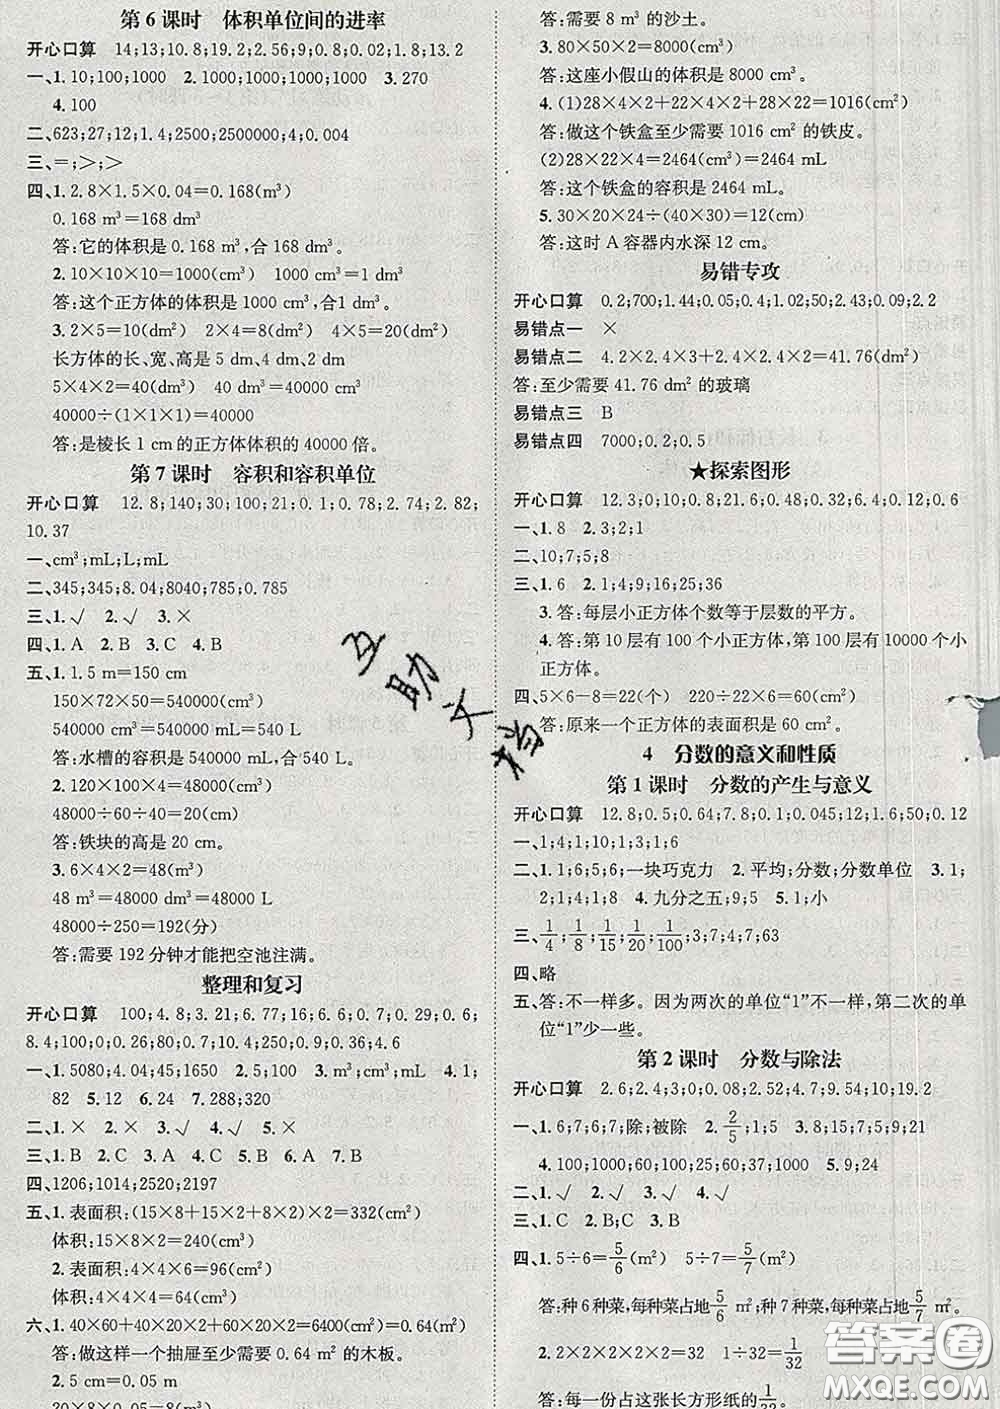 第 6 课时　体积单位间的进率
开心口算　14;13;10.8;19.2;2.56;9;0.8;0.02;1.8;13.2
一、1.10;100;1000　2.1000;1000　3.270
4.100
二、623;27;12;1.4;2500;2500000;4;0.004
三、=;>;>
四、1.2.8×1.5×0.04=0.168(m³)
0.168 m³=168 dm³
答:它的体积是 0.168 m³,合 168 dm³。
2.10×10×10=1000(cm³)
答:这个正方体的体积是 1000 cm³,合1 dm³。
3.2×5=10(dm²)　2×4=8(dm²)　4×5=20(dm²)
长方体的长、宽、高是 5 dm、4 dm、2 dm
5×4×2=40(dm³)　40 dm³=40000(cm³)
40000÷(1×1×1)=40000
答:是棱长 1 cm 的正方体体积的 40000 倍。
第 7 课时　容积和容积单位
开心口算　12.8;140;30;100;21;0.1;0.78;2.74;2.82;
10.37
一、cm³;mL;L;mL
二、345;345;8.04;8040;785;0.785
三、1.√　2.√　3.×
四、1.A　2.B　3.C　4.B
五、1.1.5 m=150 cm
150×72×50=540000(cm³)
540000 cm³=540000 mL=540 L
答:水槽的容积是 540000 mL,合 540 L。
2.120×100×4=48000(cm³)
48000÷60÷40=20(cm)
答:铁块的高是 20 cm。
3.6×4×2=48(m³)
48 m³=48000 dm³=48000 L
48000÷250=192(分)
答:需要 192 分钟才能把空池注满。
整理和复习
开心口算　100;4.8;3.21;6.77;16;6.6;0.7;0.29;0.6;
8.4;100;0;0.26;80;0.7;10.4;250;0.9;0.36;4.6
一、1.5080;4.04;45;1650　2.5;100　3.m³;cm³;mL　4.1;
82　5.12　6.24　7.288;320
二、1.×　2.×　3.√　4.√　5.√
三、1.B　2.C　3.A　4.C　5.B
四、1206;1014;2520;2197
五、1.表面积:(15×8+15×2+8×2)×2=332(cm²)
体积:15×8×2=240(cm³)
2.表面积:4×4×6=96(cm²)
体积:4×4×4=64(cm³)
六、1.40×60+40×20×2+60×20×2=6400(cm²)
答:做这样一个抽屉至少需要 0.64 m² 的木板。
2.5 cm=0.05 m
答:需要 8 m³ 的沙土。
3.80×50×2=8000(cm³)
答:这座小假山的体积是 8000 cm³。
4.(1)28×4×2+22×4×2+28×22=1016(cm²)
答:做这个铁盒至少需要 1016 cm² 的铁皮。
(2)28×22×4=2464(cm³)=2464 mL
答:这个铁盒的容积是 2464 mL。
5.30×20×24÷(40×30)=12(cm)
答:这时 A 容器内水深 12 cm。
易错专攻
开心口算　0.2;700;1.44;0.05;0.4;1.02;50;2.43;0.09;2.2
易错点一　×
易错点二　4.2×2.4×3+2.4×2.4×2=41.76(dm²)
答:至少需要 41.76 dm² 的玻璃
易错点三　B
易错点四　7000;0.2;0.5
★探索图形
开心口算　12.3;0;10;0.8;21.6;0.48;0.32;6.4;0.12;0.6
一、1.8　2.3;2;1
二、10;7;5;8
三、1.6　2.1;4;9;16;25;36
3.答:每层小正方体个数等于层数的平方。
4.答:第 10 层有 100 个小正方体,第 100 层有 10000 个小
正方体。
四、5×6-8=22(个)　220÷22×6=60(cm²)
答:原来一个正方体的表面积是 60 cm²。
4　分数的意义和性质
第 1 课时　分数的产生与意义
开心口算　12.8;0.5;0.64;7.8;0.1;0.045;12;1.6;50;0.12
一、1;4;1;10;1;3;1;6
二、1.1;6;5;6;一块巧克力　2.平均;分数;分数单位　3.1;
2;1;4;1;8　4.九分之五;9;5　5.1;小
三、1/4;1/8;1/15;1/20;1/100;3;7;4;7;63
四、略
五、答:不一样多。因为两次的单位“1”不一样,第二次的单
位“1”少一些。
第 2 课时　分数与除法
开心口算　2.6;2.4;3;0;0.08;2.52;4.7;9.54;10;19.2
一、1.6;7;6;7;除;被除　2.2/5;1;5　3.8;15;8;15;7;9;21
4.100;1000;60;100;54;60;25;60;37;1000　5.9;24
二、1.√　2.√　3.√　4.√
三、1.C　2.B　3.C
四、1.5÷6=5/6(m²)　5÷7=5/7(m²)
答:种 6 种菜,每种菜占地5/6 m²;种 7 种菜,每种菜占地5/7 m²。
2.2×2×2×2×2=32　1÷32=1/32
答:每一份占这张长方形纸的
互助文档
答案圈
MXQE.COM